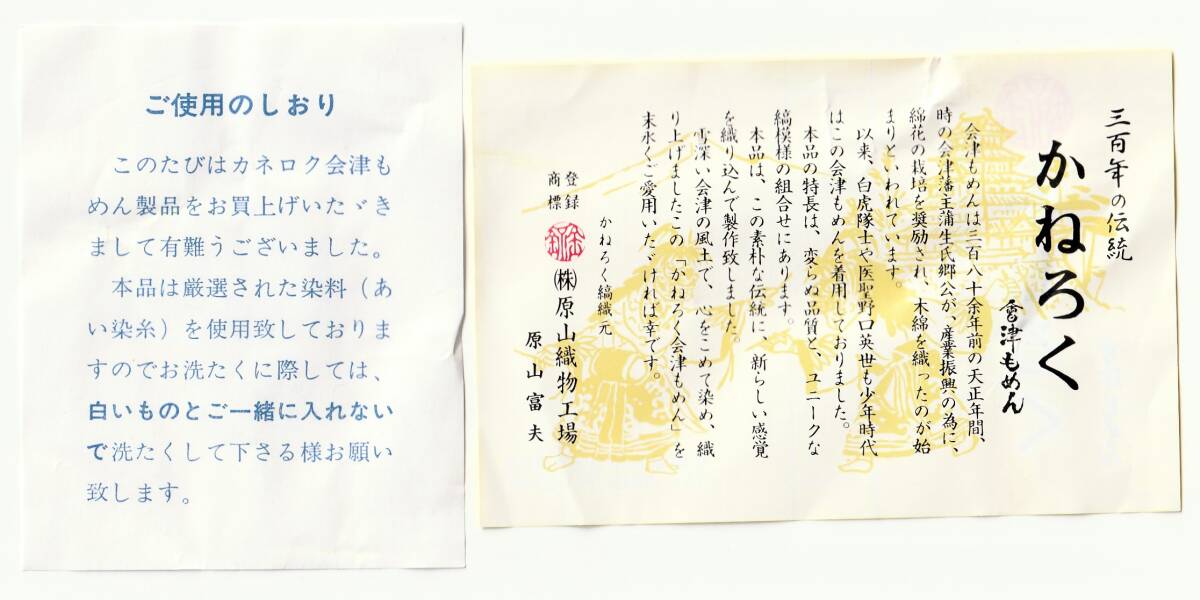 ご使用のしおり
このたびはカネロク会津も
めん製品をお買上げいたゞき
まして有難うございました。
本品は厳選された染料（あ
い染糸）を使用致しておりま
すのでお洗たくに際しては、
白いものとご一緒に入れない
で洗たくして下さる様お願い
致します。
三百年の伝統
かねろく
會津もめん
会津もめんは三百八十余年前の天正年間、
時の会津藩主蒲生氏郷公が、産業振興の為に、
綿花の栽培を奨励され、木綿を織ったのが始
まりといわれています。
以来、白虎隊士や医聖野口英世も少年時代
はこの会津もめんを着用しておりました。
本品の特長は、変らぬ品質と、ユニークな
縞模様の組合せにあります。
本品は、この素朴な伝統に、新らしい感覚
を織り込んで製作致しました。
雪深い会津の風土で、心をこめて染め、織
り上げましたこの「かねろく会津もめん」を
末永くご愛用いたゞければ幸です。
かねろく縞織元
登録
商標
㈱原山織物工場
原山富夫